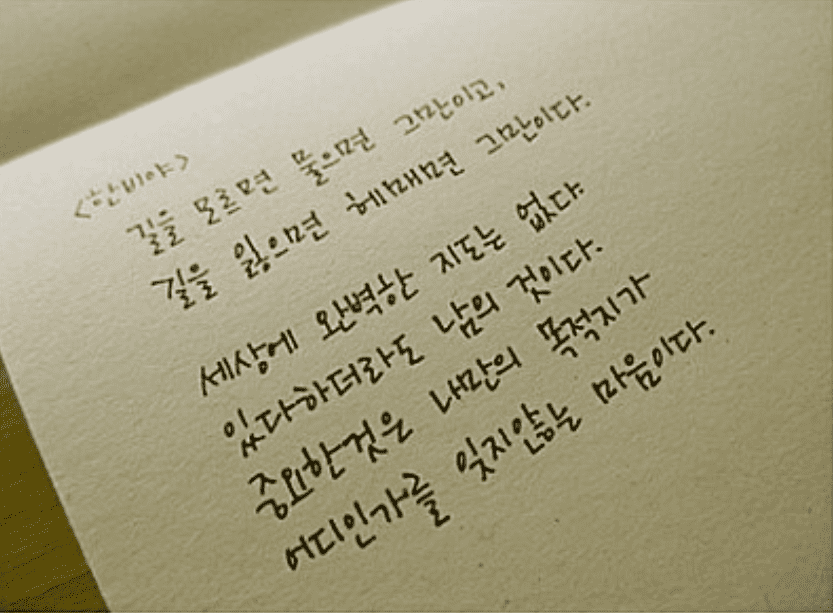 <한비야>
길을 모르면 물으면 그만이고,
길을 잃으면 헤매면 그만이다.
세상에 완벽한 지도는 없다
있다하더라도 남의 것이다.
중요한것은 나만의 목적지가
어디인가를 잊지않는 마음이다.